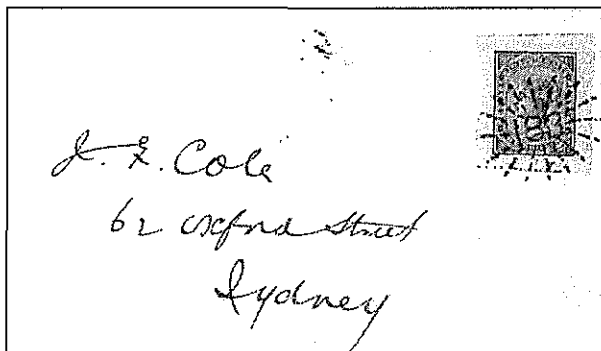 J. F. Cole
62 Oxford Street
Sydney